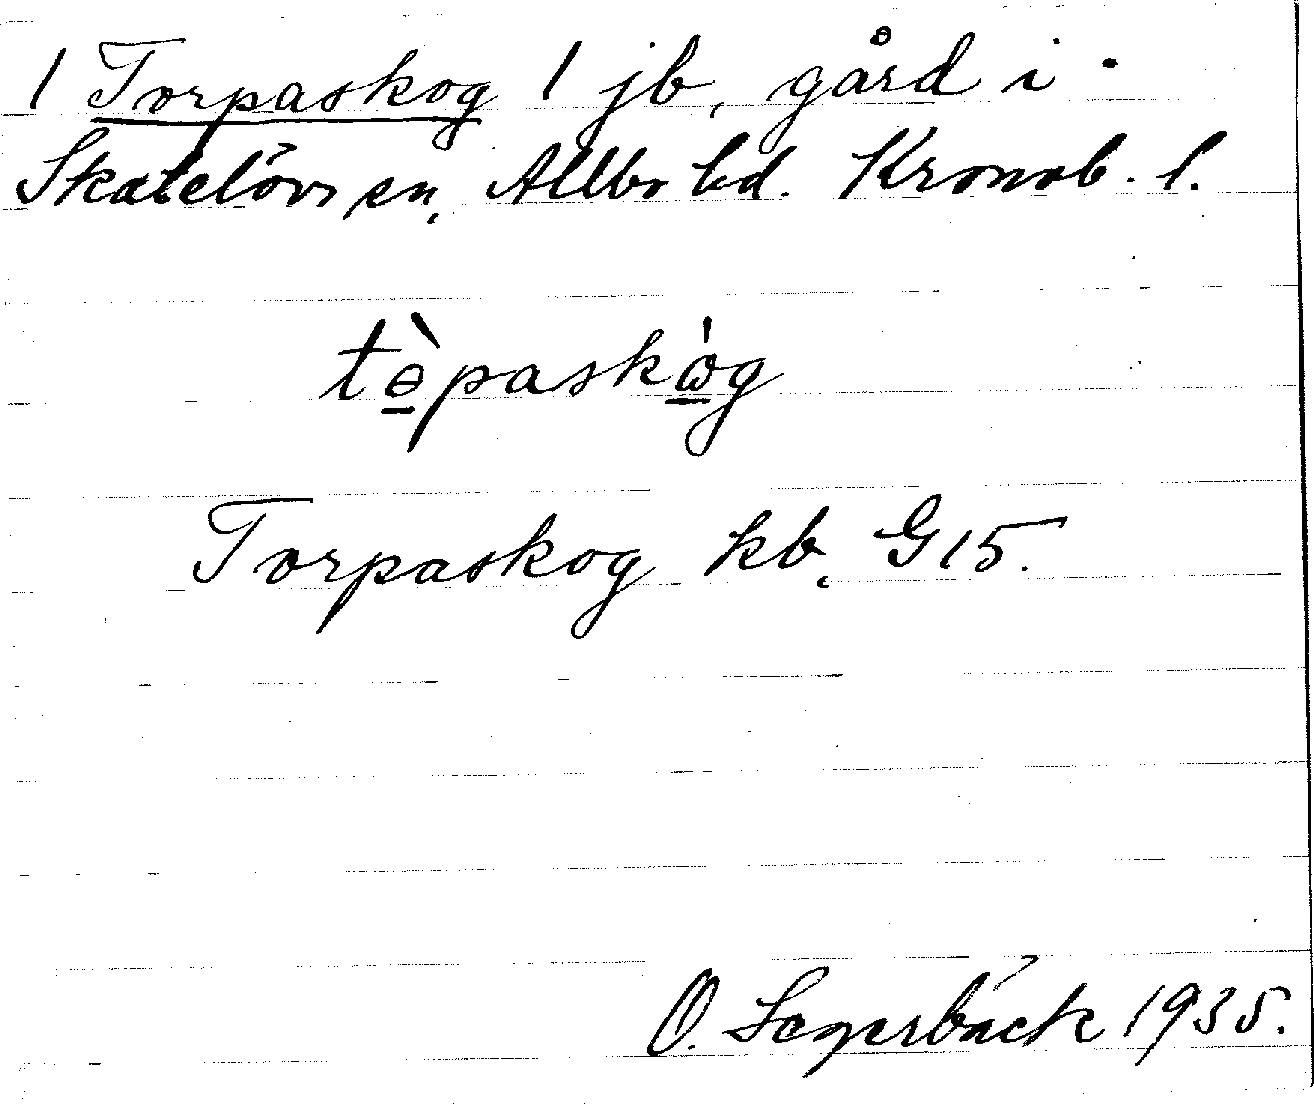 / Torpaskog / jb, gård i
Skatelövs sn, Allbo hd. Kronob. l.
tɵ̀paskὼg
Torpaskog kb, G15.
O. Segerbäck 1935.